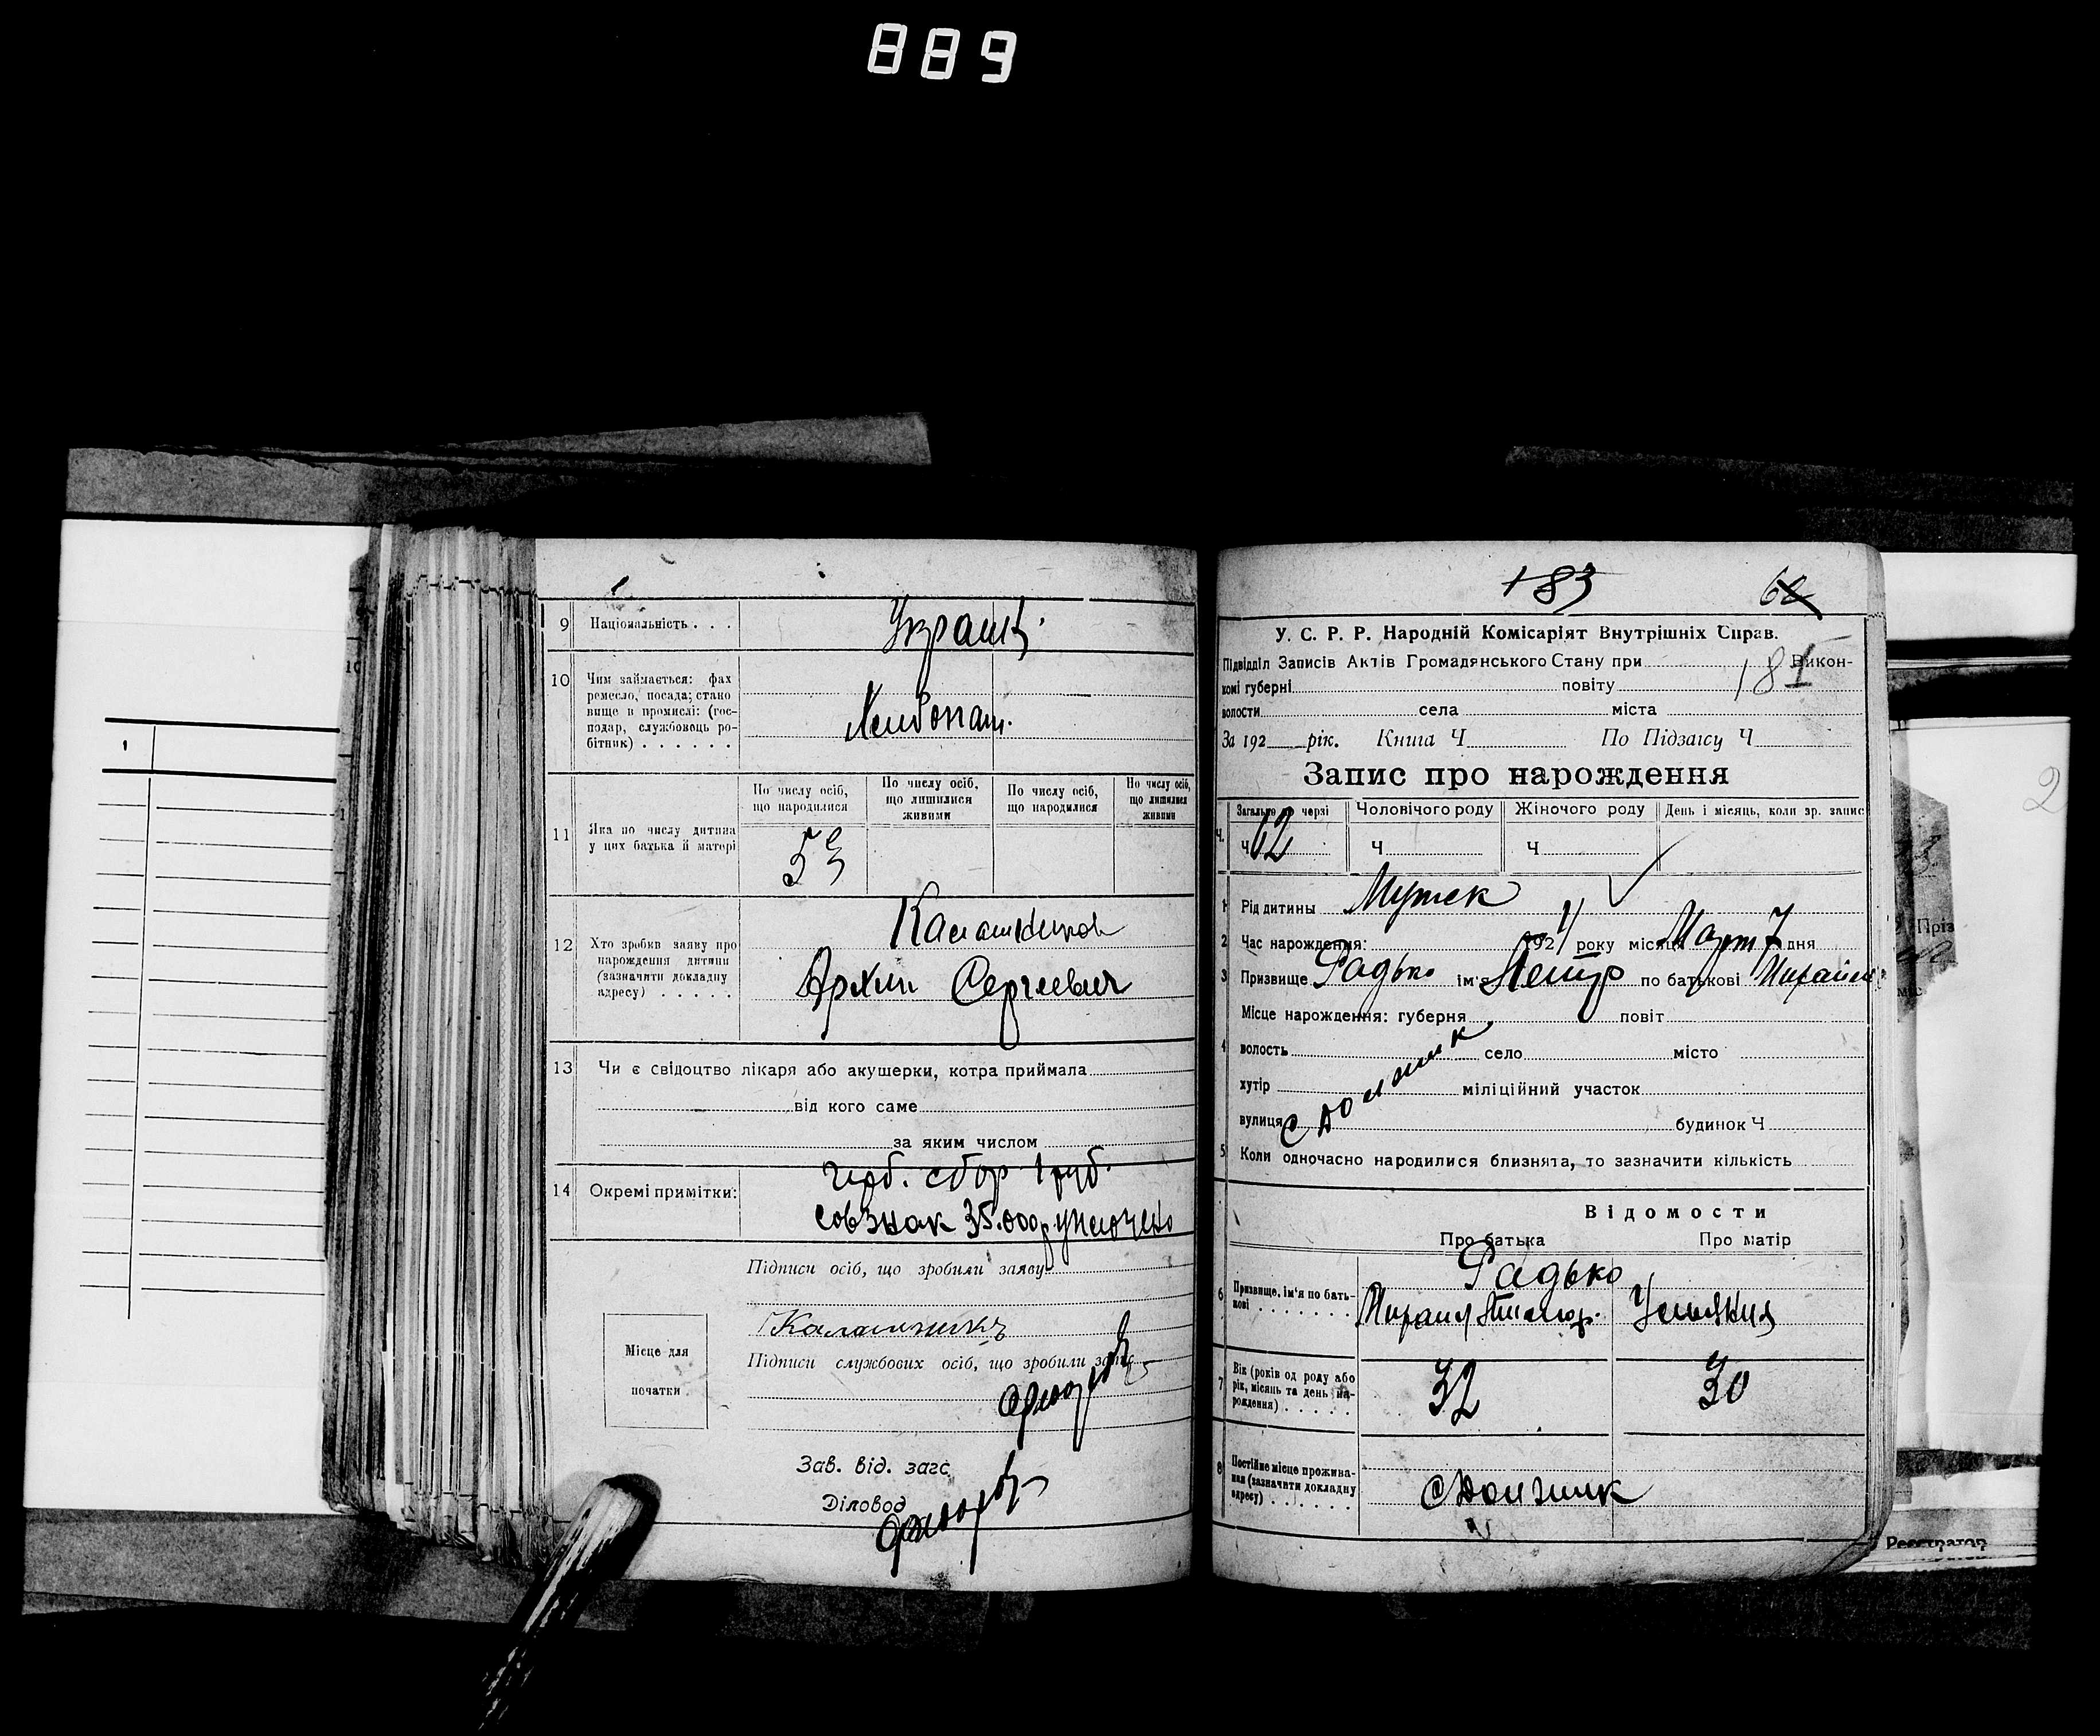 889
9 Національність . . .
Україн.
10 Чим займається: фах
ремесло, посада; стано
вище в промислі: (гос-
подар, службовець ро-
бітник) . . . . . .
Хлібопаш.
11 Яка по числу дитина
у цих батька й матері
По числу осіб,
що народилися
По числу осіб,
що лишилися
живими
По числу осіб,
що народилися
По числу осіб,
що лишилися
живими
12 Хто зробив заяву про
нарождення дитини
(зазначити докладну
адресу) . . . . .
Калашников
Архип Сергеевич
13 Чи є свідоцтво лікаря або акушерки, котра приймала
від кого саме
за яким числом
14 Окремі примітки:
герб. сбор 1 руб.
совзнак 35.000р уплочено
Підписи осіб, що зробили заяву
Калашникъ
Підписи службових осіб, що зробили запис
Місце для
початки
Зав. від. загс
Діловод
183 62
У. С. Р. Р. Народній Комісаріят Внутрішніх Справ.
Підвідділ Записів Актів Громадянського Стану при Викон-
комі губерні повіту 181
волости села міста
За 192 рік. Книга Ч По Підзагсу Ч
Запис про нарождення
Загальне по черзі Чоловічого роду Жіночого роду День і місяць, коли зр. запис
Ч. Ч 62 Ч Ч
1 Рід дитини Мужск
2 Час нарождення: 192 року місяц Март 7 дня
3 Призвище Радько ім'я Петр по батькові Михайл
Місце нарождення: губерня повіт
4 волость село місто
хутір міліційний участок
вулиця будинок Ч
с Должик
5 Коли одночасно народилися близнята, то зазначити кількість
Відомости
Про батька Про матір
Радько
6 Призвище, ім'я по бать-
кові . . . . . . .
Михаил Ульяния
7 Вік (років од роду або
рік, місяць та день на-
рождення) . . . . .
32 30
8 Постійне місце прожива-
ння (зазначити докладну
адресу) . . . . . .
с Должик
Пріз
Реєстратор
2
1